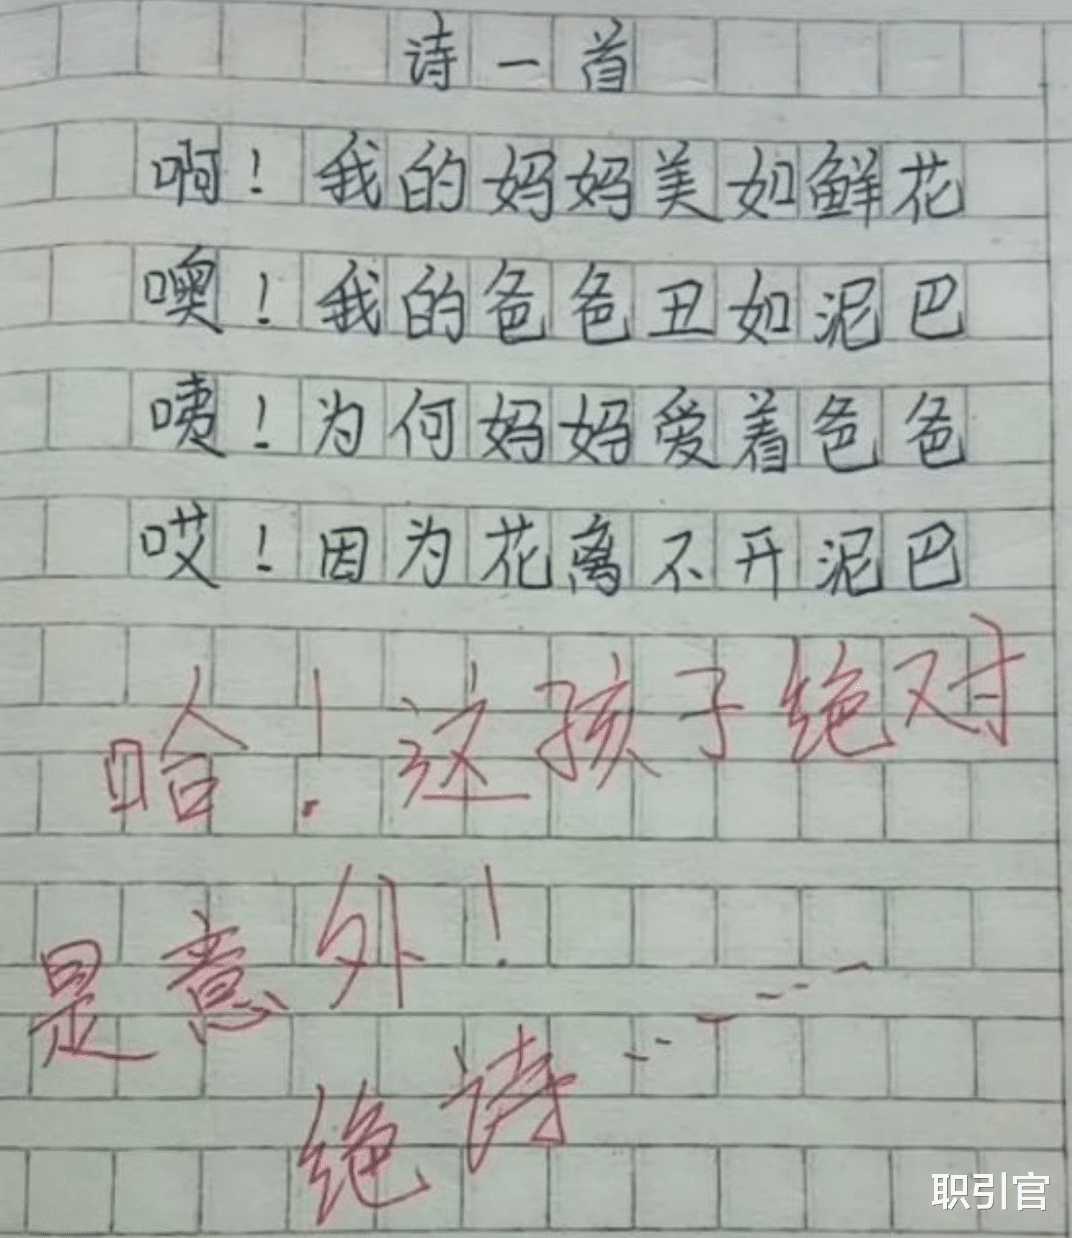 诗一首
啊！我的妈妈美如鲜花
噢！我的爸爸丑如泥巴
咦！为何妈妈爱着爸爸
哎！因为花离不开泥巴
哈！这孩子绝对
是意外！
绝诗……
职引官